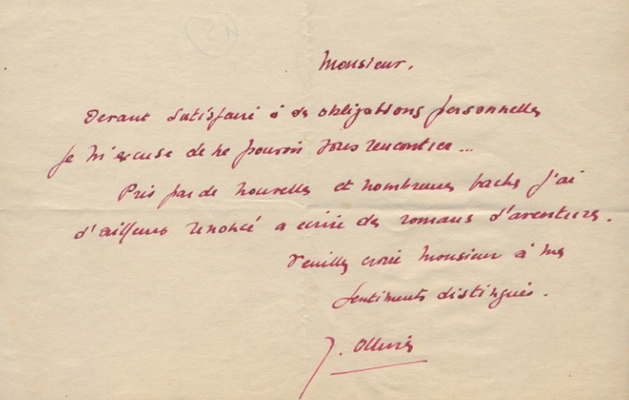 Monsieur,
Devant satisfaire à des obligations personnelles
je m'excuse de ne pouvoir vous rencontrer...
Pris par de nouvelles et nombreuses taches j'ai
d'ailleurs renoncé a écrire des romans d'aventures.
Veuillez croire Monsieur à mes
sentiments distingués.
J.